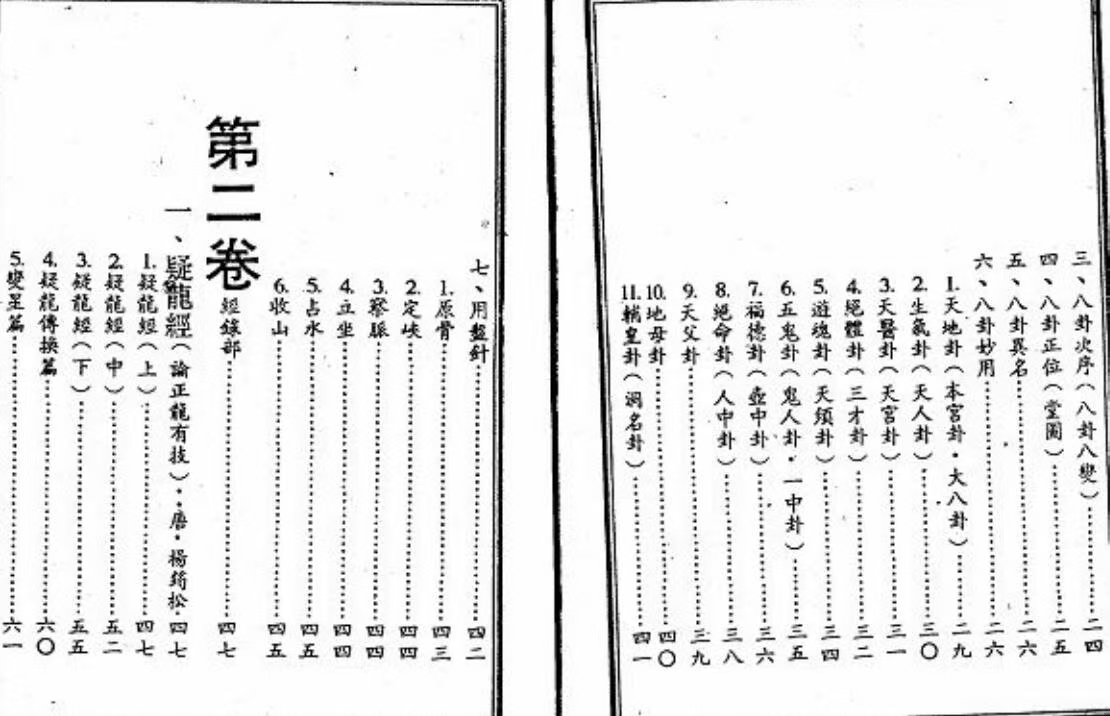 三、八卦次序（八卦八變）⋯⋯二四
四、八卦正位（堂圖）⋯⋯二五
五、八卦異名⋯⋯二六
六、八卦妙用⋯⋯二六
1.天地卦（本宮卦・大八卦）⋯⋯二九
2.生氣卦（天人卦）⋯⋯三〇
3.天醫卦（天宮卦）⋯⋯三一
4.絕體卦（三才卦）⋯⋯三二
5.遊魂卦（天須卦）⋯⋯三四
6.五鬼卦（鬼人卦・一中卦）⋯⋯三五
7.福德卦（壺中卦）⋯⋯三六
8.絕命卦（人中卦）⋯⋯三八
9.天父卦⋯⋯三九
10.地母卦⋯⋯四〇
11.輔皇卦（洞名卦）⋯⋯四一
七、用盤針⋯⋯四二
1.原骨⋯⋯四三
2.定峽⋯⋯四四
3.察脈⋯⋯四四
4.立坐⋯⋯四四
5.占水⋯⋯四五
6.收山⋯⋯四五
第二卷 經錄部⋯⋯四七
一、疑龍經（論正龍有技）・・唐・楊筠松・四七
1.疑龍經（上）⋯⋯四七
2.疑龍經（中）⋯⋯五二
3.疑龍經（下）⋯⋯五五
4.疑龍傳換篇⋯⋯六〇
5.變星篇⋯⋯六一